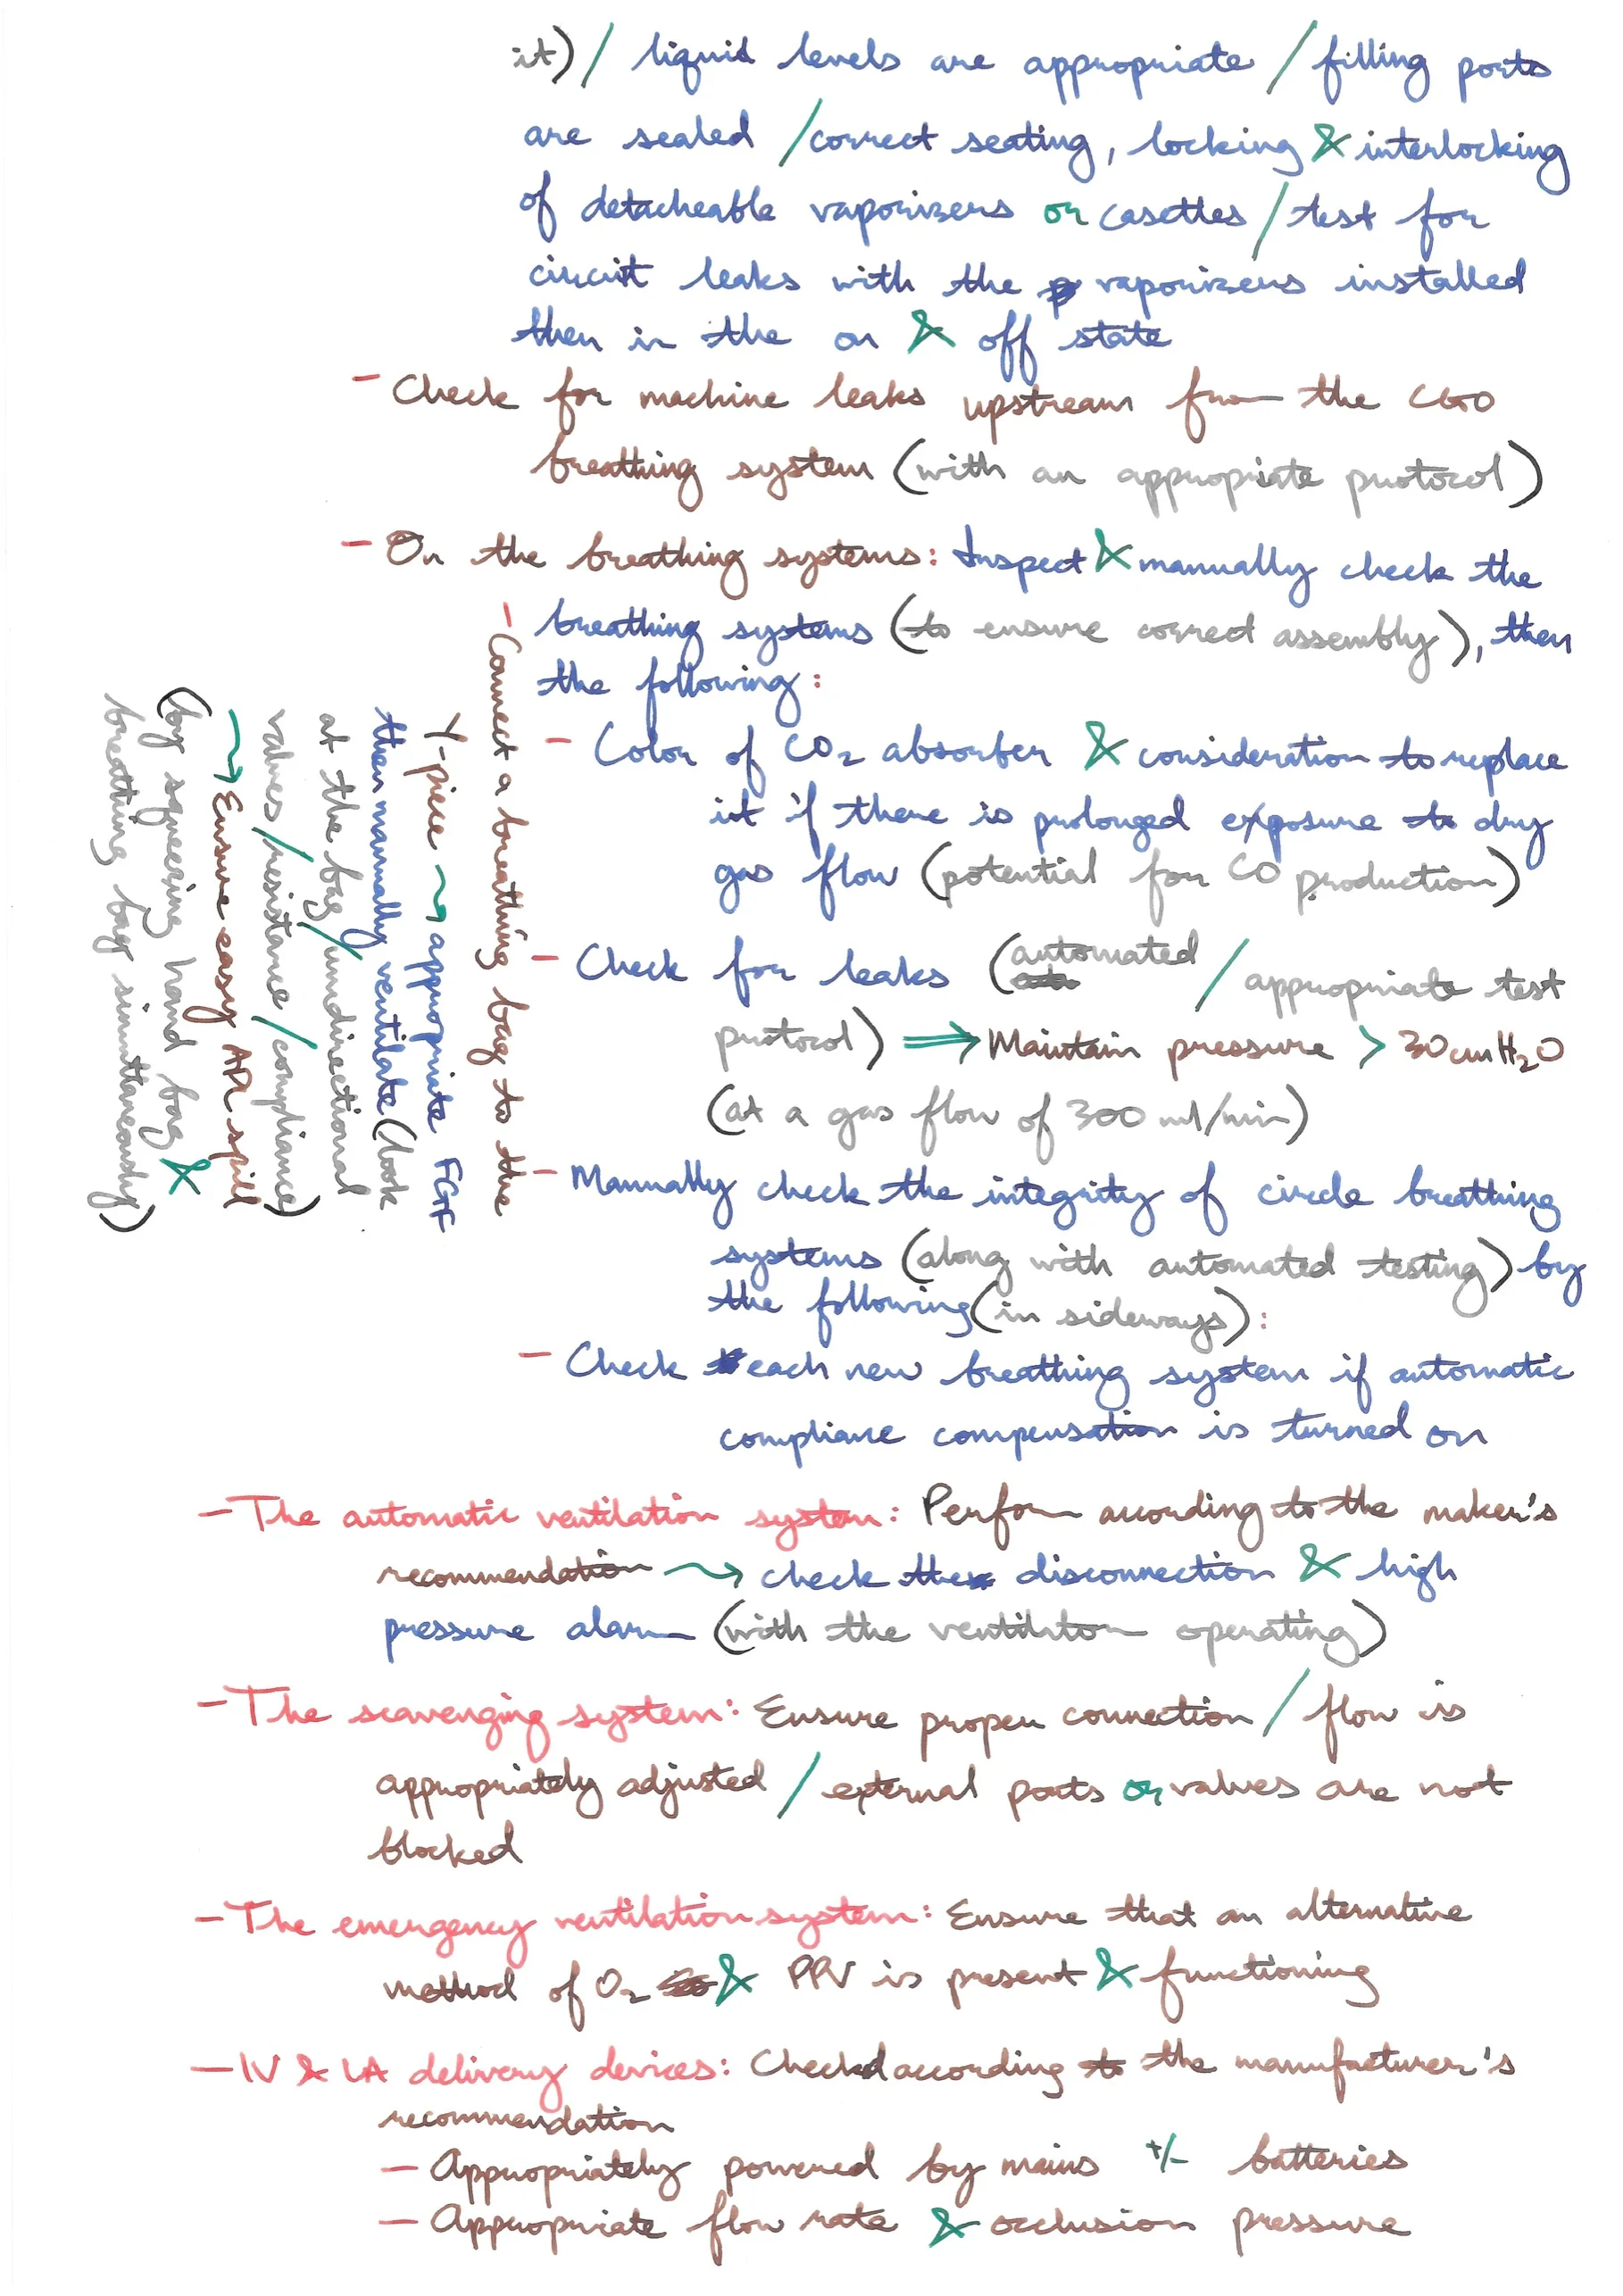 it) / liquid levels are appropriate / filling ports
are sealed / correct seating, locking & interlocking
of detacheable vaporizers or casettes / test for
circuit leaks with the vaporizers installed
then in the on & off state
- Check for machine leaks upstream from the CGO
breathing system (with an appropriate protocol)
- On the breathing systems: Inspect & manually check the
breathing systems (to ensure correct assembly), then
the following:
- Color of CO₂ absorber & consideration to replace
it if there is prolonged exposure to dry
gas flow (potential for CO production)
- Check for leaks (automated / appropriate test
protocol) ⟹ Maintain pressure > 30cmH₂O
(at a gas flow of 300 ml/min)
- Manually check the integrity of circle breathing
systems (along with automated testing) by
the following (in sideways):
- Connect a breathing bag to the
Y-piece → appropriate FGF
then manually ventilate (look
at the bag / undirectional
valves / resistance / compliance)
→ Ensure easy APL spill
(by squeezing hand bag &
breathing bag simultaneously)
- Check each new breathing system if automatic
compliance compensation is turned on
- The automatic ventilation system: Perform according to the maker's
recommendation → check the disconnection & high
pressure alarm (with the ventilator operating)
- The scavenging system: Ensure proper connection / flow is
appropriately adjusted / external ports or valves are not
blocked
- The emergency ventilation system: Ensure that an alternative
method of O₂ & PPV is present & functioning
- IV & LA delivery devices: Checkd according to the manufacturer's
recommendation
- Appropriately powered by mains +/- batteries
- Appropriate flow rate & occlusion pressure